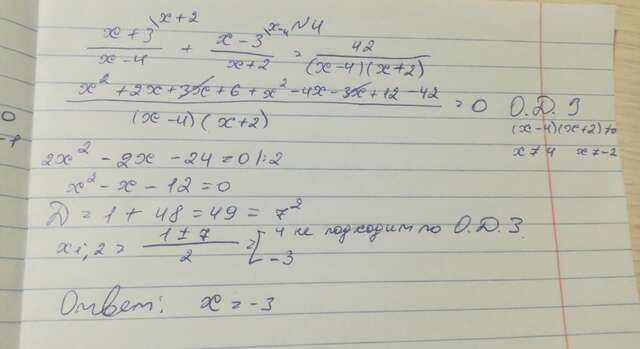 №4
(x+3)/(x-4) \x+2 + (x-3)/(x+2) \x-4 = 42/((x-4)(x+2))
(x² + 2x + 3x + 6 + x² - 4x - 3x + 12 - 42)/((x-4)(x+2)) = 0
О.Д.З
(x-4)(x+2)≠0
x≠4 x≠-2
2x² - 2x - 24 = 0 |:2
x² - x - 12 = 0
D = 1 + 48 = 49 = 7²
x₁,₂ = (1±7)/2 = [4 не подходит по О.Д.З.
-3
Ответ: x = -3